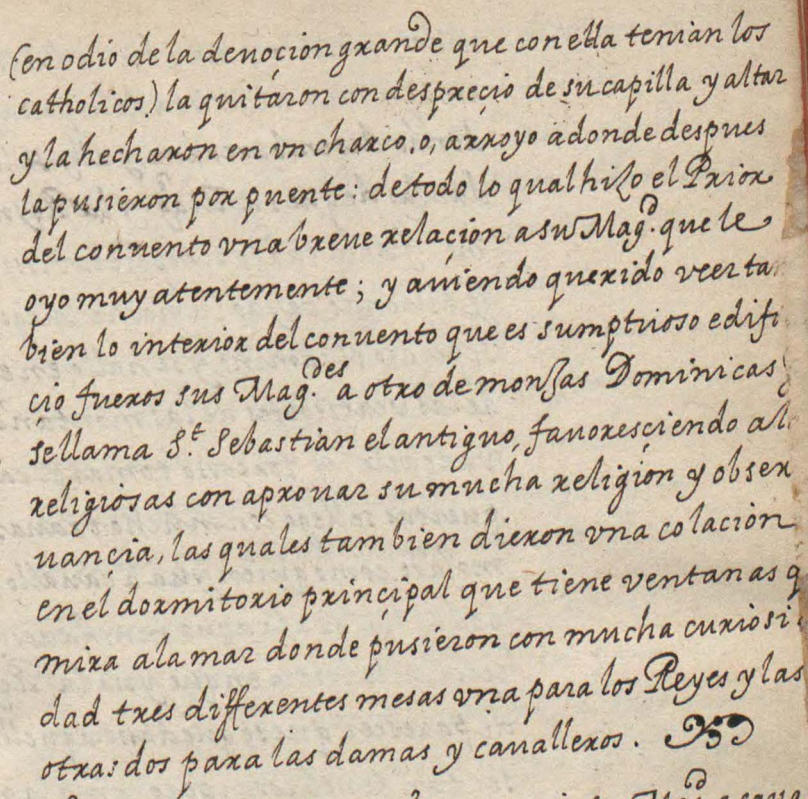 (en odio de la devoçion grande que con ella tenian los
catholicos) la quitaron con despreçio de su capilla y altar
y la hecharon en vn charco, o, arroyo adonde despues
la pusieron por puente: de todo lo qual hizo el Prior
del conuento vna breue relaçion a su Mag.d que le
oyo muy atentemente; y auiendo querido veer tam
bien lo interior del conuento que es sumptuoso edifi
çio fueros sus Mag.des a otro de monjas Dominicas y
se llama S.t Sebastian el antiguo, favoresçiendo a l
religiosas con aprouar su mucha religion y obser
uançia, las quales tambien dieron vna colaçion
en el dormitorio prinçipal que tiene ventanas q
mira a la mar donde pusieron con mucha curiosi
dad tres differentes mesas vna para los Reyes y las
otras dos para las damas y caualleros.